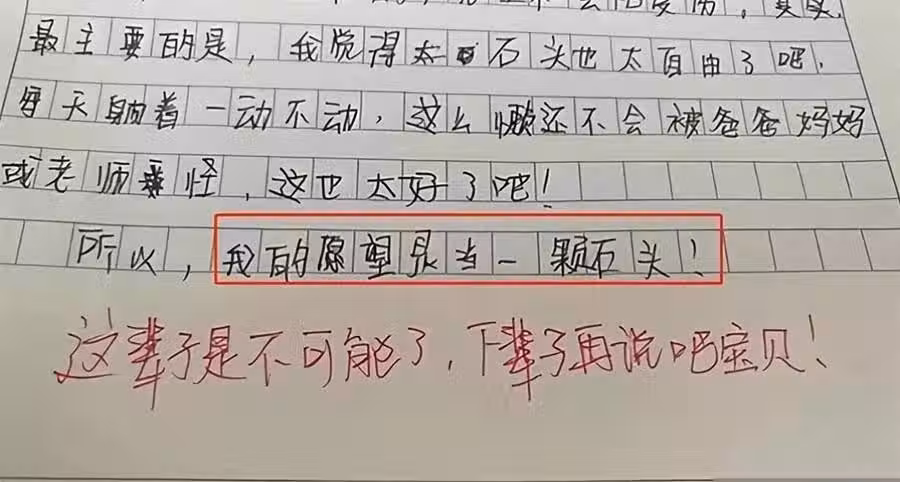 最主要的是，我觉得太石头也太自由了吧．
每天躺着一动不动，这么懒还不会被爸爸妈妈
或老师怪，这也太好了吧！
所以，我的愿望是当一颗石头！
这辈子是不可能了，下辈子再说吧宝贝！